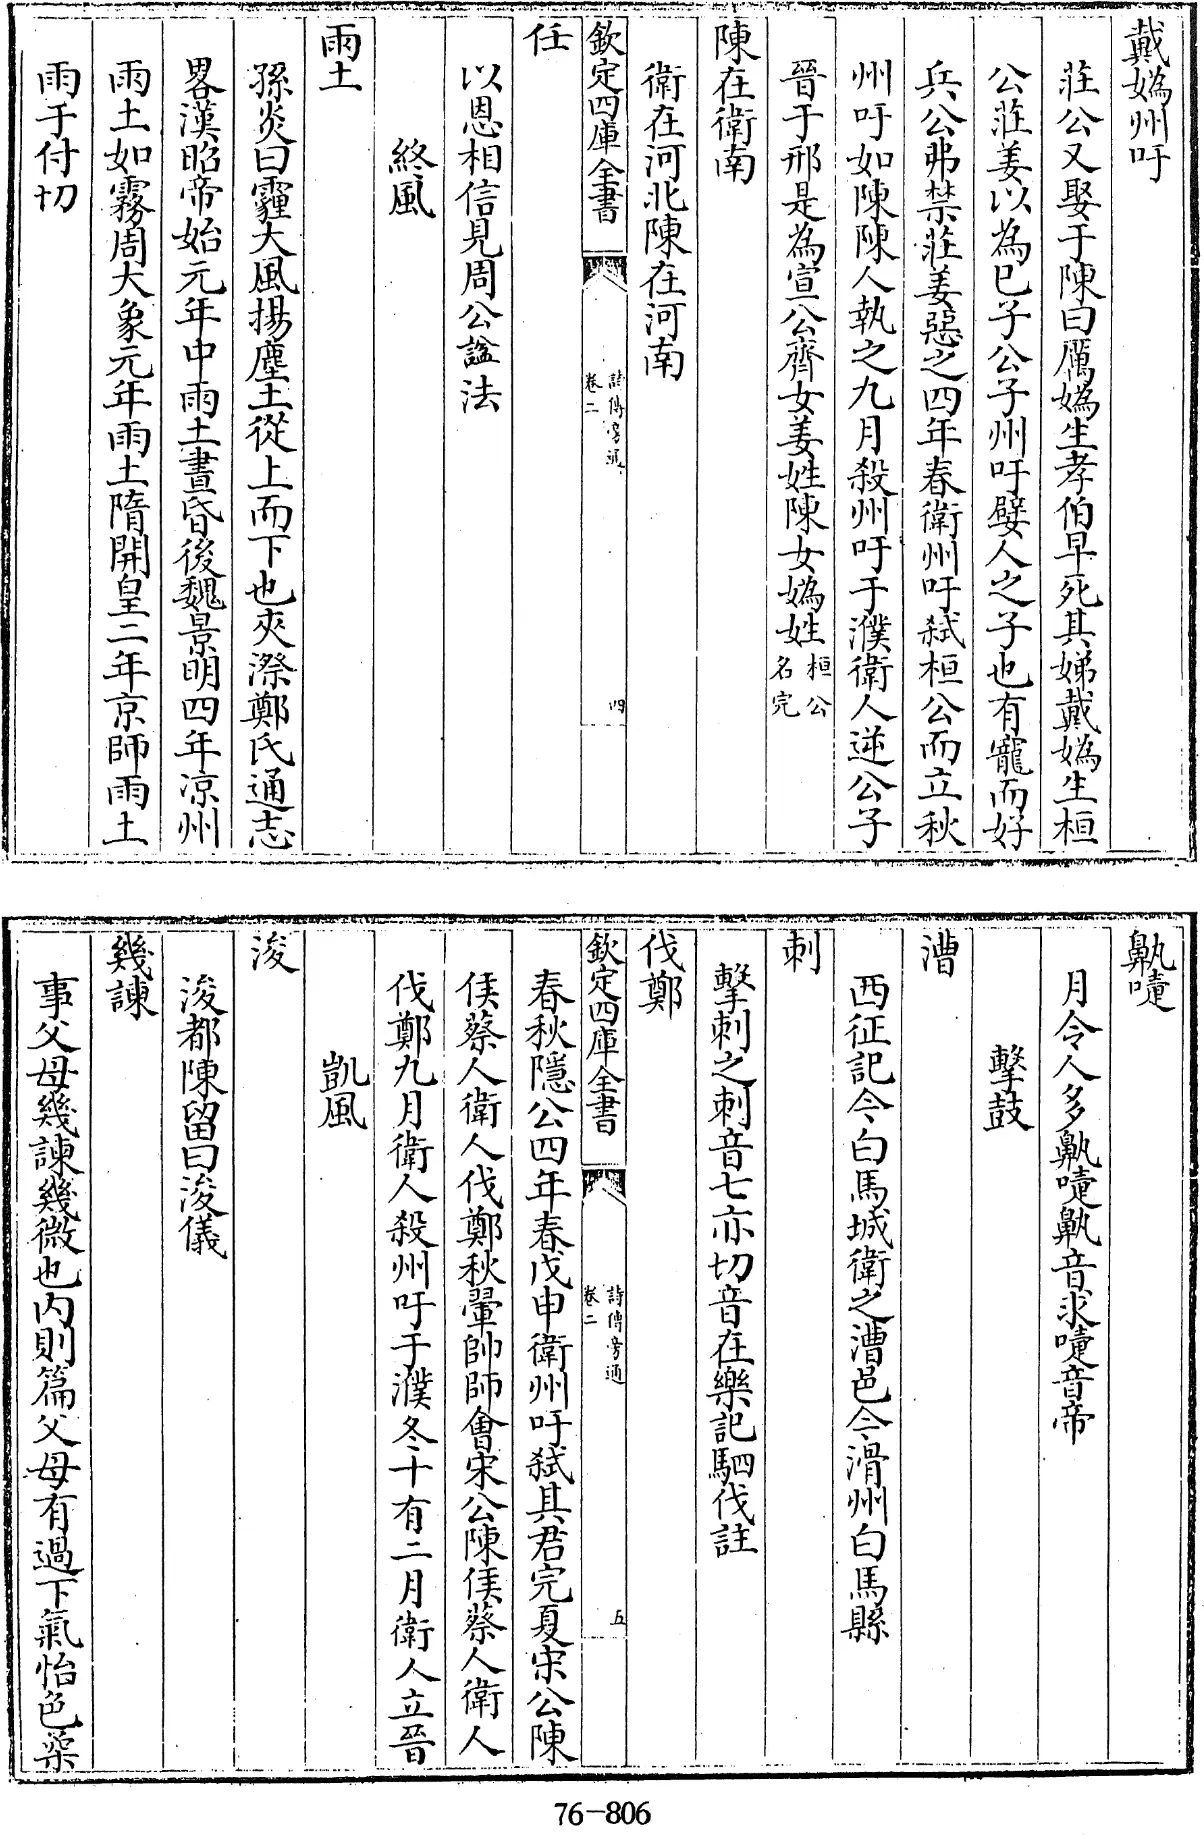 戴媯州吁
莊公又娶于陳曰厲媯生孝伯早死其娣戴媯生桓
公莊姜以為已子公子州吁嬖人之子也有寵而好
兵公弗禁莊姜惡之四年春衛州吁弑桓公而立秋
州吁如陳陳人執之九月殺州吁于濮衛人逆公子
晉于邢是為宣公齊女姜姓陳女媯姓桓公
名完
陳在衛南
衛在河北陳在河南
欽定四庫全書
詩傳旁通
卷二
四
任
以恩相信見周公諡法
終風
雨土
孫炎曰霾大風揚塵土從上而下也夾漈鄭氏通志
畧漢昭帝始元年中雨土晝昏後魏景明四年凉州
雨土如霧周大象元年雨土隋開皇二年京師雨土
雨于付切
鼽嚏
月令人多鼽嚏鼽音求嚏音帝
擊鼓
漕
西征記今白馬城衛之漕邑今滑州白馬縣
刺
擊刺之刺音七亦切音在樂記駟伐註
伐鄭
欽定四庫全書
詩傳旁通
卷二
五
春秋隱公四年春戊申衛州吁弑其君完夏宋公陳
侯蔡人衛人伐鄭秋翬帥師會宋公陳侯蔡人衛人
伐鄭九月衛人殺州吁于濮冬十有二月衛人立晉
凱風
浚
浚都陳留曰浚儀
幾諫
事父母幾諫幾微也内則篇父母有過下氣怡色柒
76-806